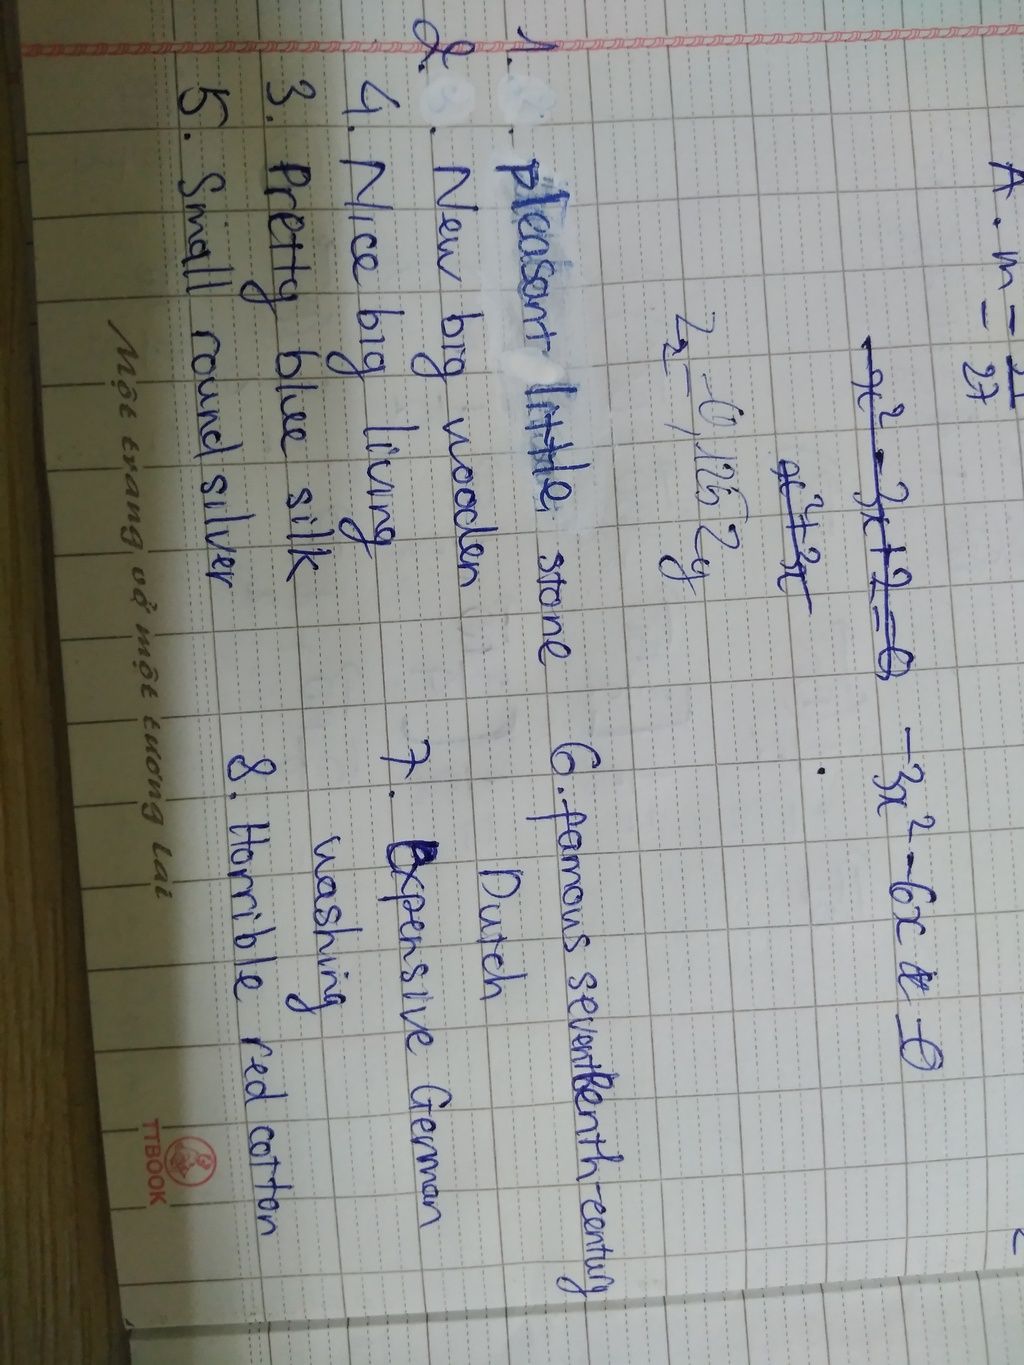 A. m = 1/27
x² - 3x + 2 = 0 -3x² - 6x = 0
x² + 3x
-0,125
1. pleasant little stone
2. New big wooden
4. Nice big living
3. Pretty blue silk
5. Small round silver
6. famous seventeenth-century
Dutch
7. Expensive German
washing
8. Horrible red cotton
Một trang vở một tương lai
TTBOOK